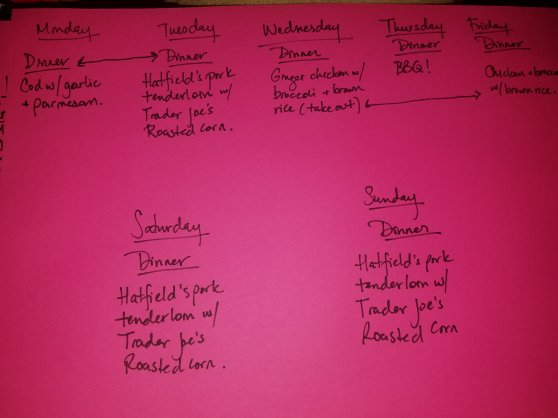 Monday
Dinner
Cod w/ garlic
+ parmesan.
Tuesday
Dinner
Hatfield's pork
tenderloin w/
Trader Joe's
Roasted corn.
Wednesday
Dinner
Ginger chicken w/
broccoli + brown
rice (take out)
Thursday
Dinner
BBQ!
Friday
Dinner
Chicken + brocc
w/ brown rice.
Saturday
Dinner
Hatfield's pork
tenderloin w/
Trader Joe's
Roasted corn.
Sunday
Dinner
Hatfield's pork
tenderloin w/
Trader Joe's
Roasted Corn